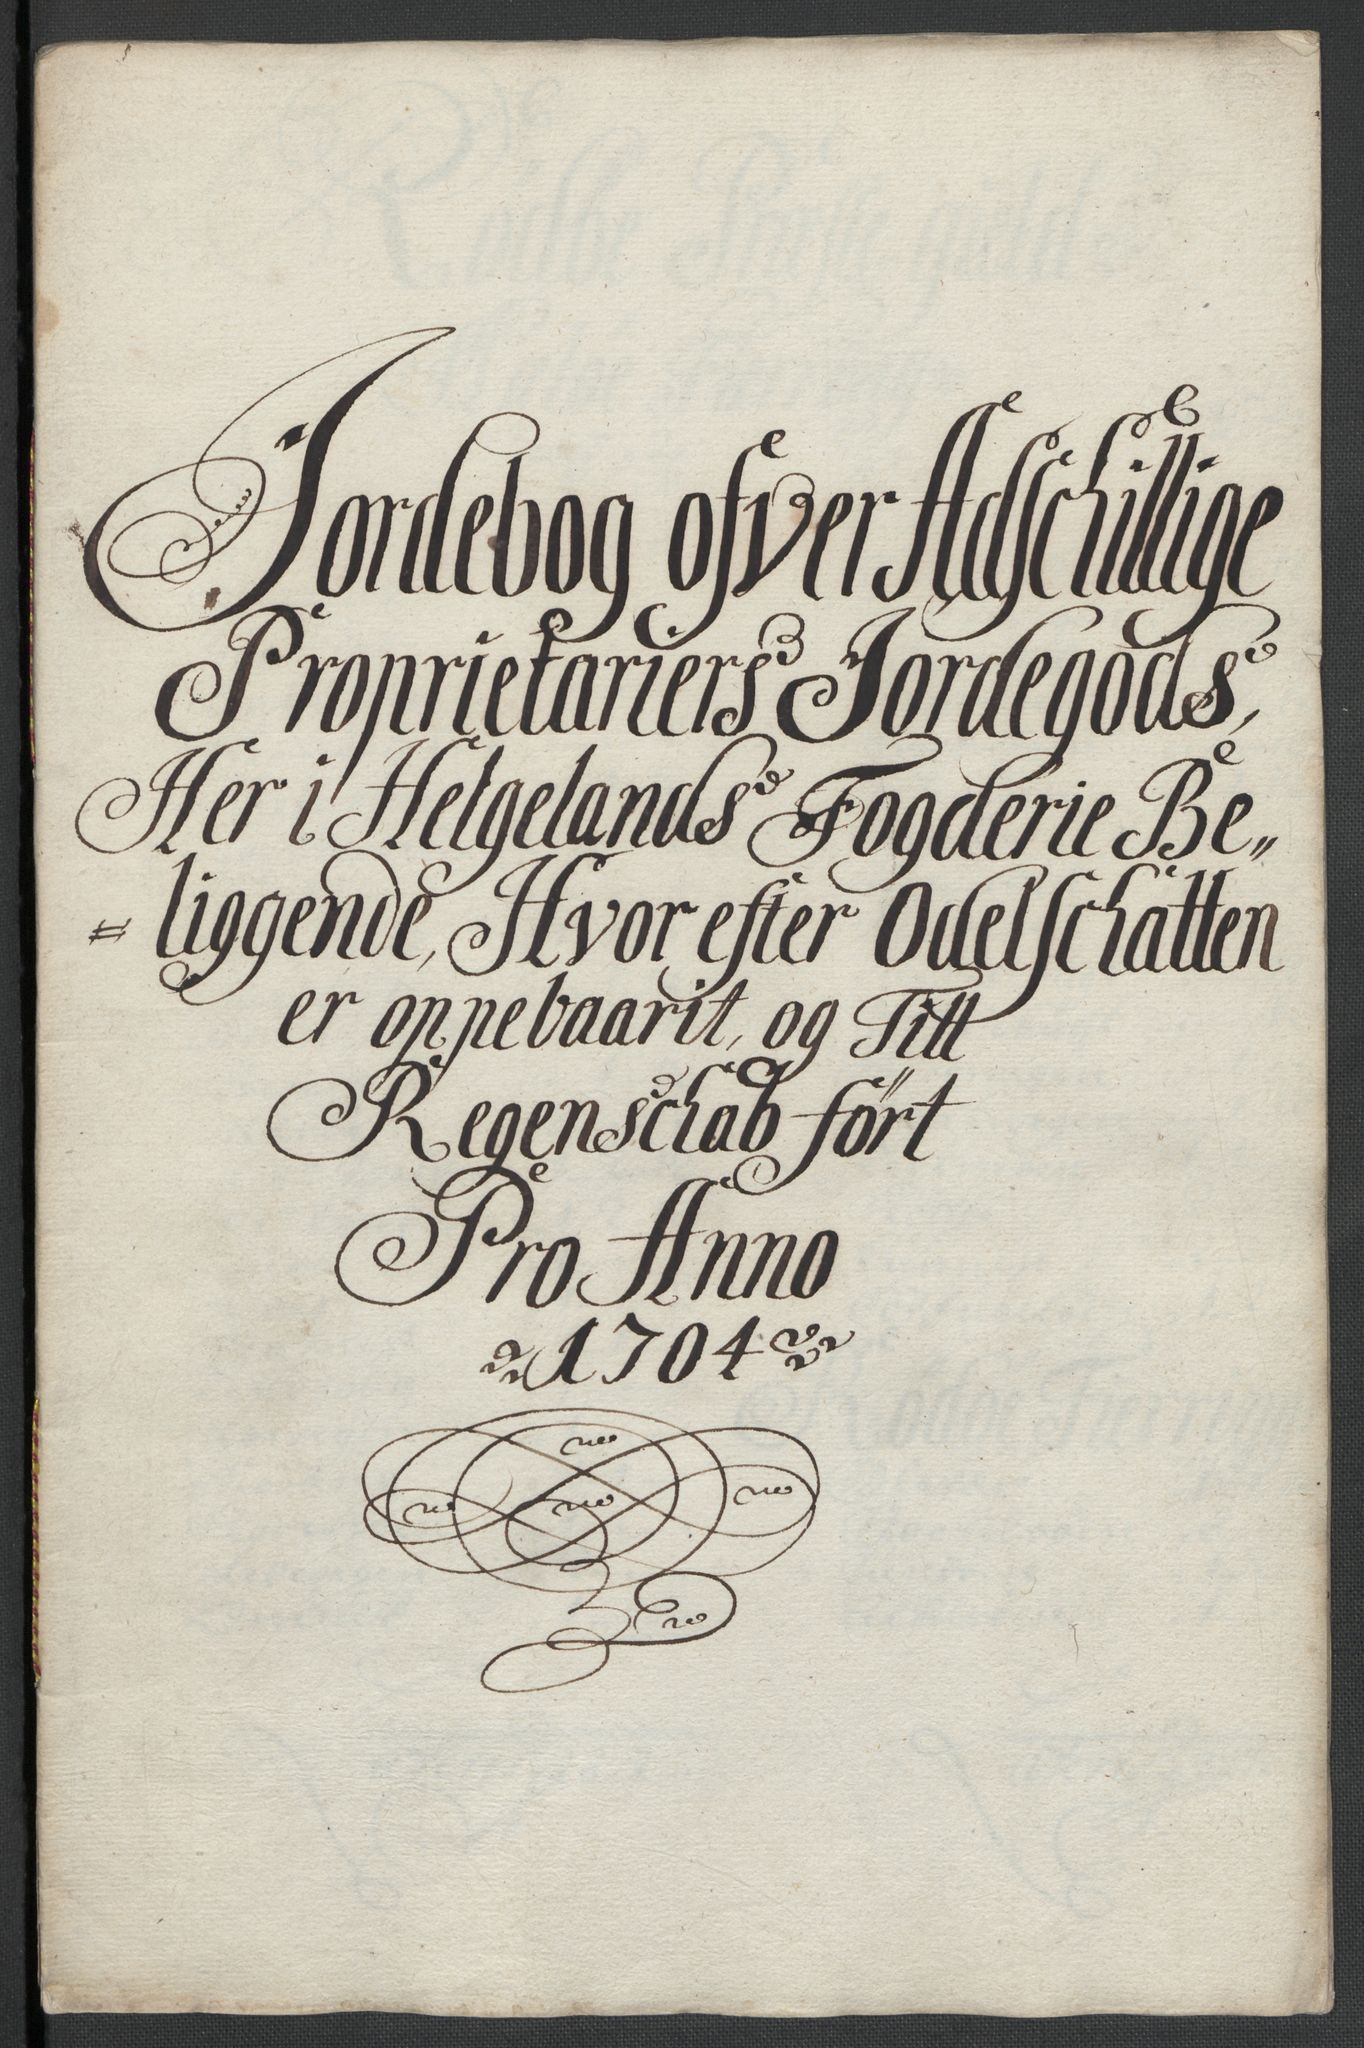 Jordebog ofver Adschillige
Proprietariers Jordegods,
Her i Helgelands Fogderie Be„
= liggende, Hvor efter Odelschatten
er oppebaarit, og Till
Regenschab ført
Pro Anno
1704